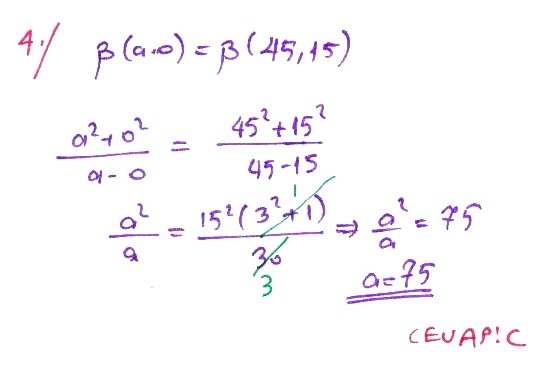 4./ β(a,0) = β(45,15)
(a²+0²)/(a-0) = (45²+15²)/(45-15)
a²/a = 15²(3²+1)/30 ⇒ a²/a = 75
1
3
a=75
CEVAP: C